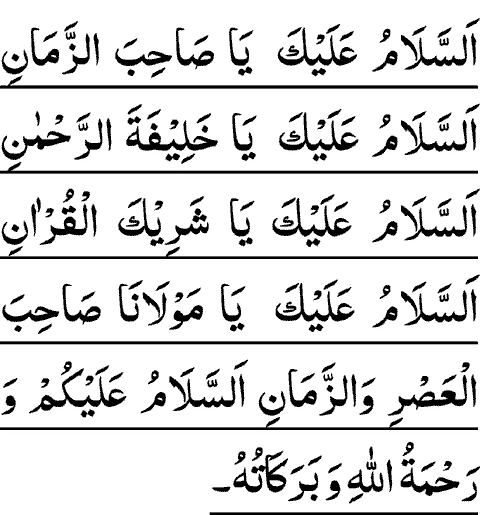 اَلسَّلَامُ عَلَيْكَ يَا صَاحِبَ الزَّمَانِ
اَلسَّلَامُ عَلَيْكَ يَا خَلِيْفَةَ الرَّحْمٰنِ
اَلسَّلَامُ عَلَيْكَ يَا شَرِيْكَ الْقُرْاٰنِ
اَلسَّلَامُ عَلَيْكَ يَا مَوْلَانَا صَاحِبَ
الْعَصْرِ وَالزَّمَانِ اَلسَّلَامُ عَلَيْكُمْ وَ
رَحْمَةُ اللهِ وَ بَرَكَاتُهُ۔